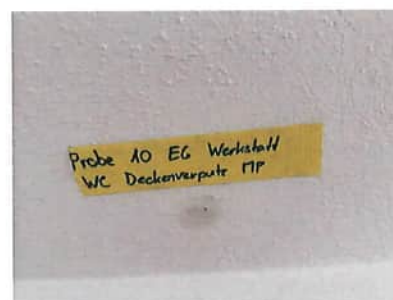 Probe 10 EG Werkstatt
WC Deckenverputz MP